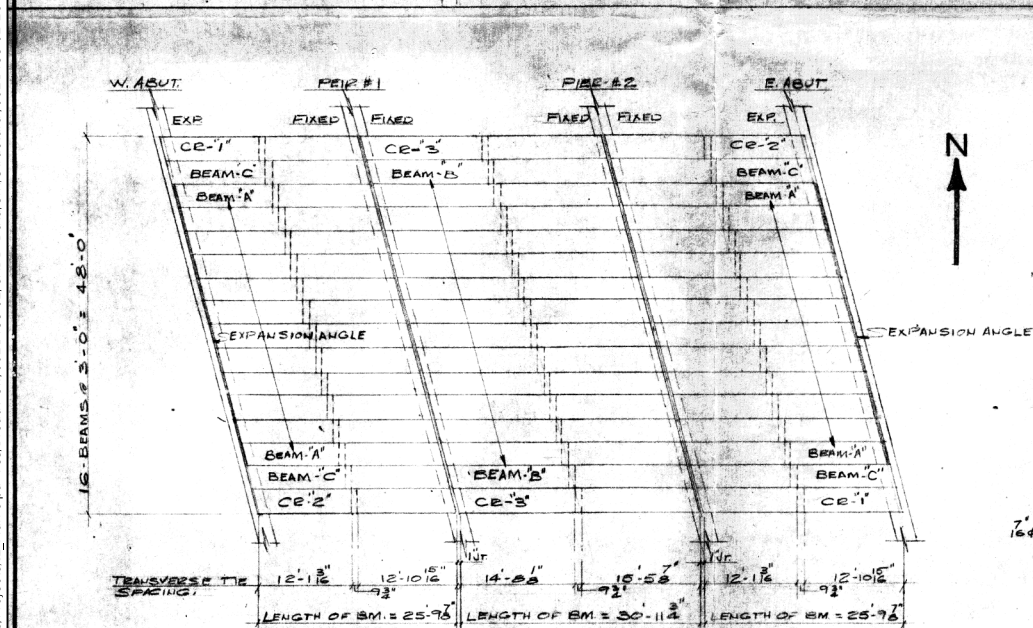 W. ABUT. PEIR #1 PIER #2 E. ABUT.
EXP. FIXED FIXED FIXED FIXED EXP.
CR-"1" CR-"3" CR-"2"
BEAM-"C" BEAM-"B" BEAM-"C"
BEAM-"A" BEAM-"A"
N
16-BEAMS @ 3'-0" = 48'-0"
EXPANSION ANGLE EXPANSION ANGLE
BEAM-"A" BEAM-"A"
BEAM-"C" BEAM-"B" BEAM-"C"
CR-"2" CR-"3" CR-"1"
7/16"φ
1"JT. 1"JT.
TRANSVERSE TIE SPACING. 12'-1 3/16" 12'-10 15/16" 14'-8 1/8" 15'-5 7/8" 12'-1 3/16" 12'-10 15/16"
9 3/4" 9 3/4" 9 3/4"
LENGTH OF BM. = 25'-9 7/8" LENGTH OF BM. = 30'-11 3/4" LENGTH OF BM. = 25'-9 7/8"